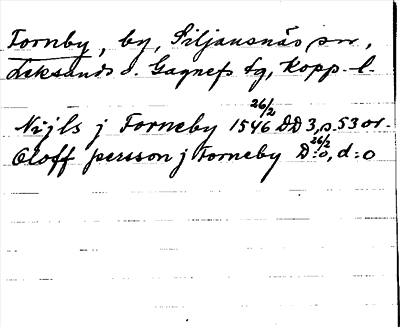 Tornby, by, Siljansnäs sn,
Leksands o. Gagnefs tg, Kopp. l.
Nijls j Torneby 26/2 1546 DD 3, s. 53 or.
Oloff persson j Torneby 26/2 D:o, d:o